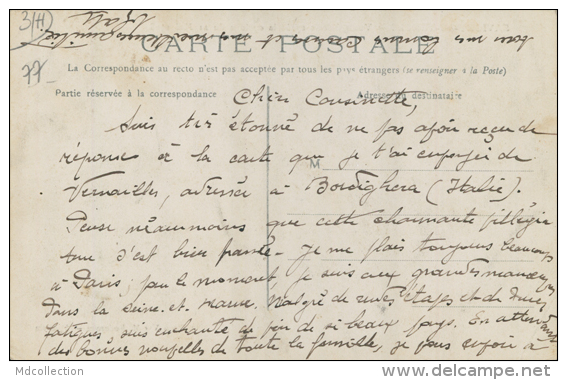 3(H)
77
CARTE POSTALE
La Correspondance au recto n'est pas acceptée par tous les pays étrangers (se renseigner à la Poste)
Partie réservée à la correspondance
Adresse du destinataire
M
Chère Cousinette,
Suis très étonné de ne pas avoir reçu de
réponse à la carte que je t'ai envoyée de
Versailles, adressée à Bordighera (Italie).
Pense néanmoins que cette charmante
s'est bien passée - Je me plais toujours beaucoup
à Paris; pour le moment, je suis aux grandes manœuvres
dans la Seine-et-Marne. Malgré de rudes étapes et de
fatigues, suis enchanté de si beaux pays. En attendant
des bonnes nouvelles de toute la famille, je vous envoie à